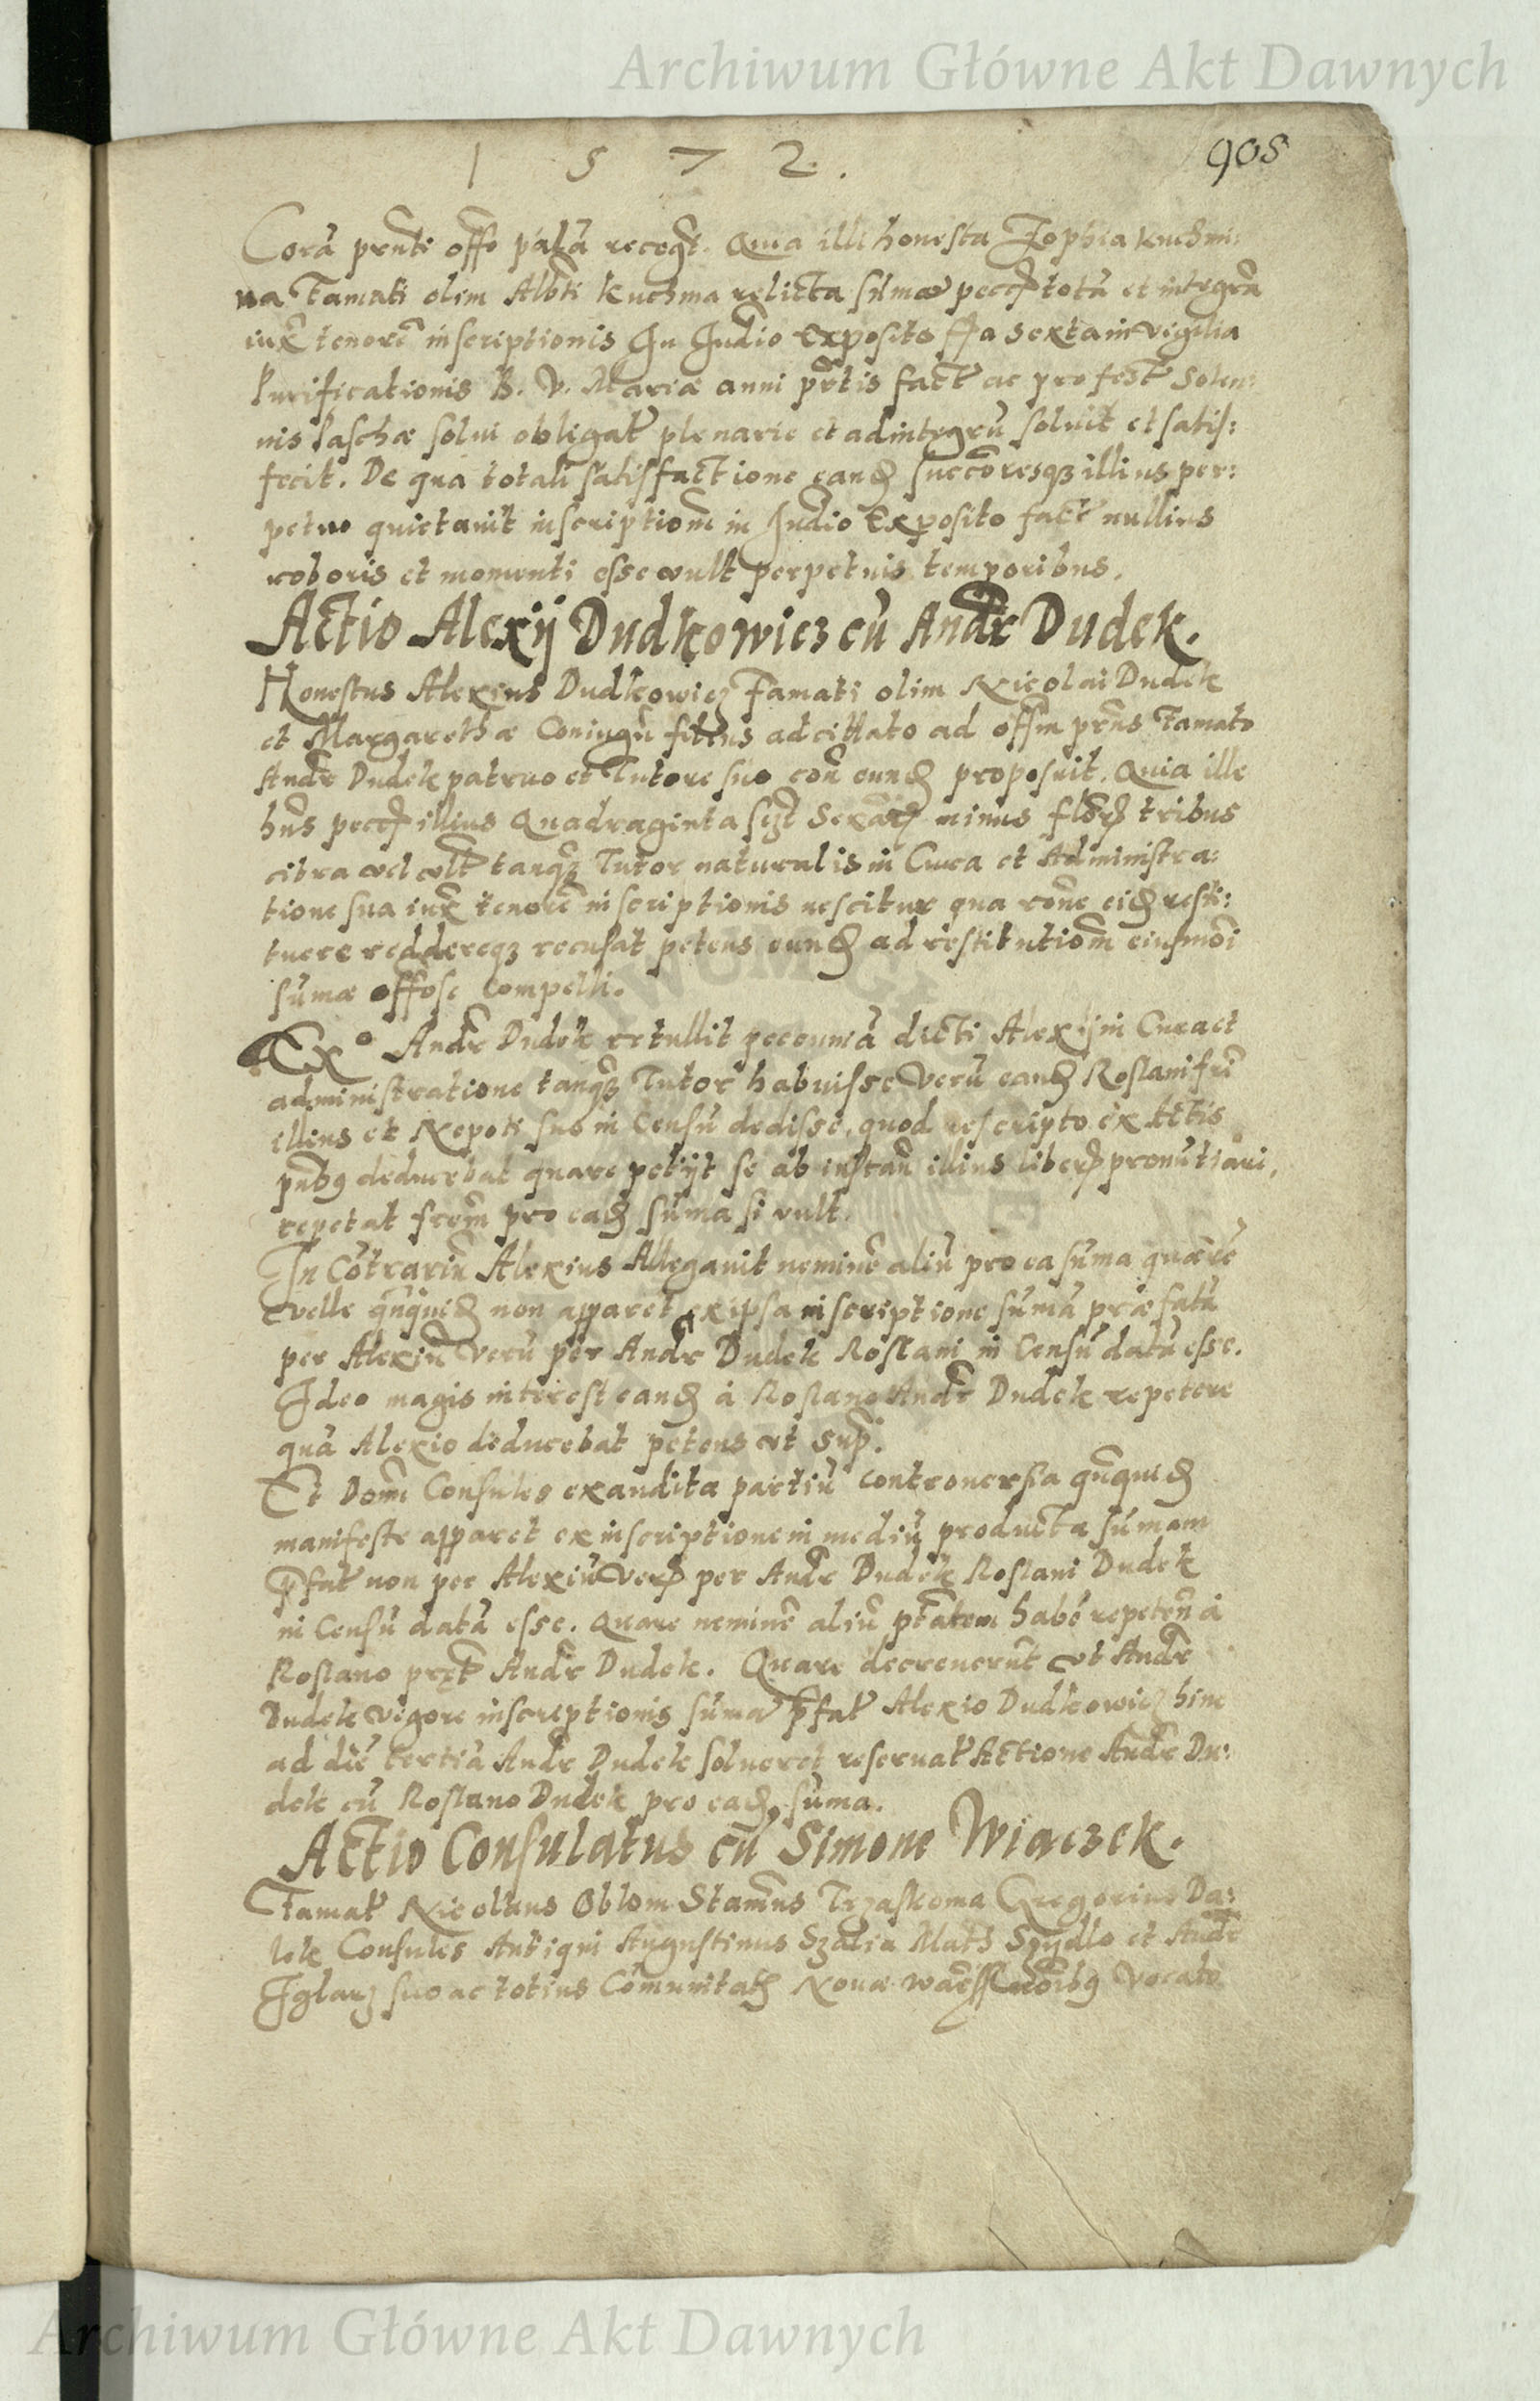 Archiwum Główne Akt Dawnych
1 5 7 2.
905
Corā prnti offo palā recogt. Quia illi honesta Zophia kuchmi:
na Famati olim Albti Kuchma relicta sūmā pecc totā et integrā
iux tenorē inscriptionis In Iudio Exposito ffa sexta in vigilia
Purificationis B. V. Mariæ anni prtis fact ac pro fest Solen:
nis Paschæ solui obligat plenarie et adintegrū soluit et satis:
fecit. De qua totali satisfactione eand succoresq illius per:
petuo quietauit inscriptiom in Iudio Exposito fact nullius
roboris et momenti esse vult perpetuis temporibus.
Actio Alexij Dudkowicz cū Andr Dudek.
Honestus Alexius Dudkowicz Famati olim Nicolai Dudek
et Margarethæ Coniugū filius ad cittato ad offm prns Famato
Andr Dudek patruo et Tutore suo con eund proposuit. Quia ille
hns pecc illius Quadraginta Sexar minus flor tribus
citra vel vlt tanq Tutor naturalis in Cura et Administra:
tione sua iux tenorē inscriptionis nescitur qua rone eid resti:
tuere reddereq recusat petens eund ad restitutiom eiusmoi
sūmæ offose compelli.
Exo Andr Dudek retullit pecuniā dicti Alexij in Cura et
administratione tanq Tutor habuisse Verū eand Roslani fri
illius et Nepoti suo in Censū dedisse, quod rescripto ex Actis
pntbg deducebat quare petijt se ab instan illius liber pronūtiari,
repetat frem pro ead sūma si vult.
In Cōtrariū Alexius Allegauit neminē aliū pro ea sūma quærere
velle qnquid non apparet ex ipsa inscriptione sūmā præfatā
per Alexiū verū per Andr Dudek Roslani in Censū datā esse.
Ideo magis interest eand à Roslano Andr Dudek repetere
quā Alexio deducebat petens vt supr.
Et Domi Consules exaudita partiū controuersia qnquid
manifeste apparet ex inscriptione in mediū producta sūmam
pfat non per Alexiū Ver per Andr Dudek Roslani Dudek
in Censū datā esse. Quare neminē aliū ptatem habe repeten à
Roslano prt Andr Dudek. Quare decreuerūt vt Andr
Dudek vigore inscriptionis sūmā pfat Alexio Dudkowicz hinc
ad diē tertiā Andr Dudek solueret reseruat Actione Andr Du:
dek cū Roslano Dudek pro ead sūma.
Actio Consulatus cū Simone Wiaczek.
Famat Nicolaus Oblom Stamns Trzaskoma Gregorius Da:
lek Consules Antiqui Augustinus Szalia Math Szydlo et Andr
Iglarz suo ac totius Cōmunitat Nouæ vocato
Archiwum Główne Akt Dawnych